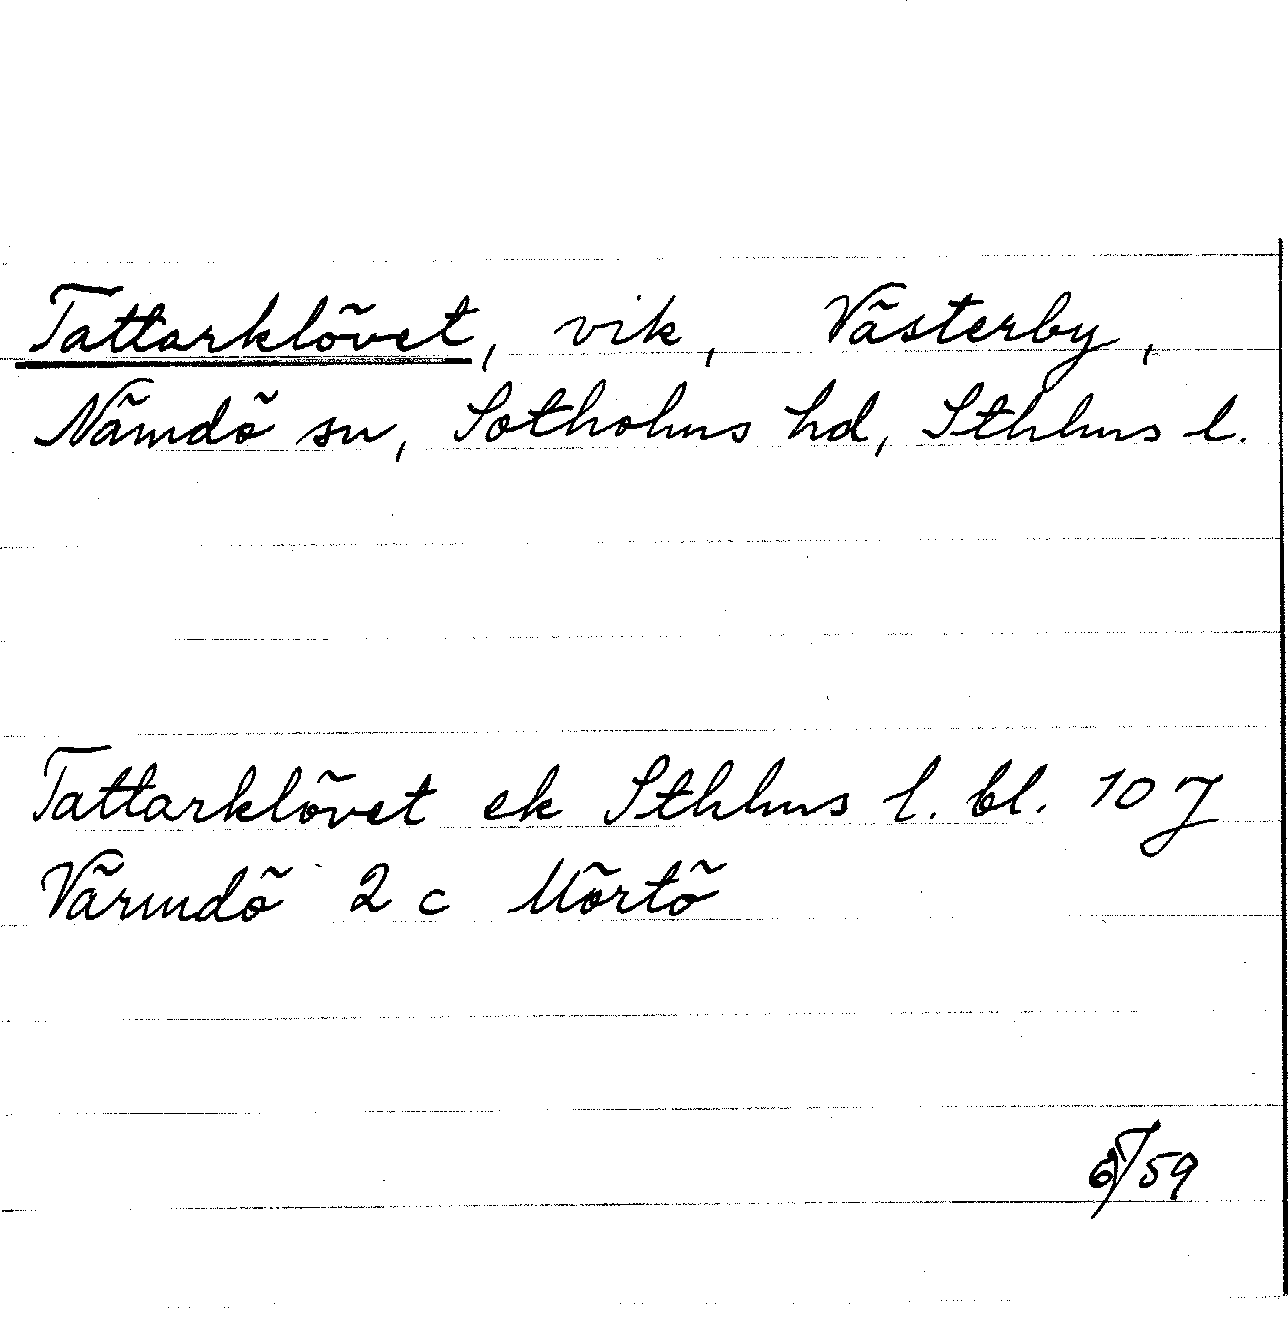 Tattarklövet, vik, Västerby,
Nämdö sn, Sotholms hd, Sthlms l.
Tattarklövet ek Sthlms l. bl. 10 J
Värmdö 2 c Mörtö
59